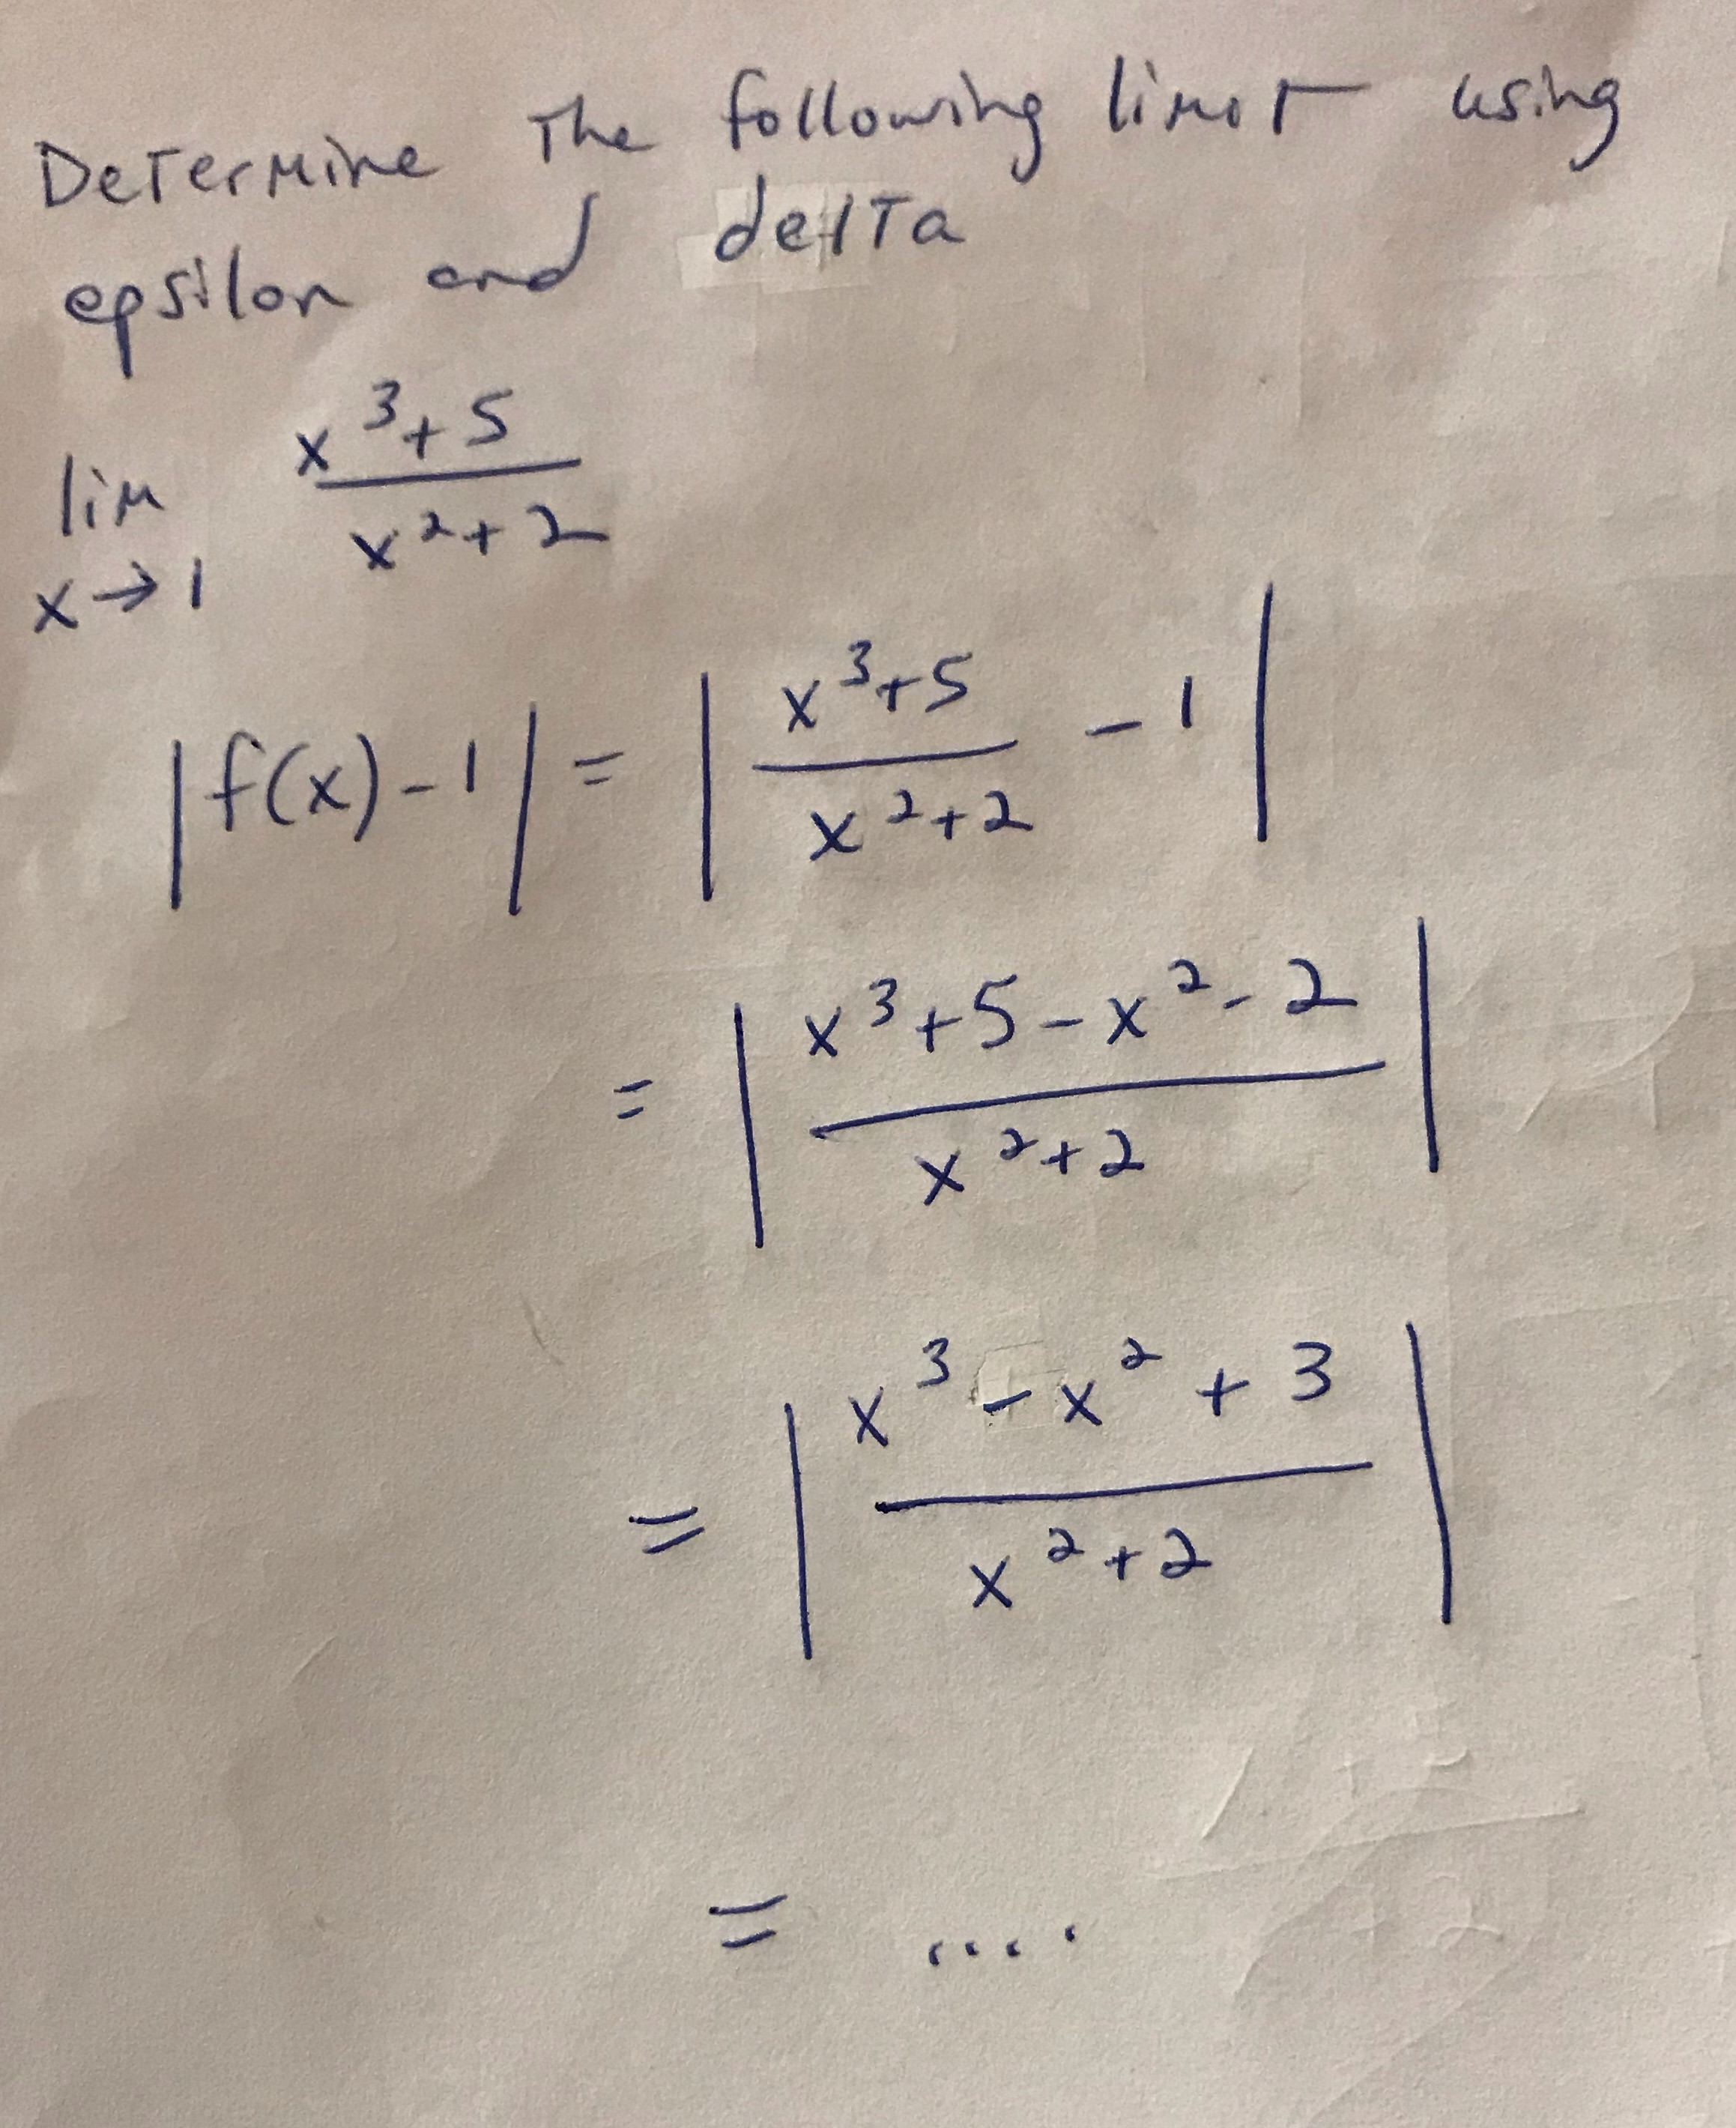 Determine the following limit using
epsilon and delta
lim x→1 (x^3+5)/(x^2+2)
|f(x)-1| = |(x^3+5)/(x^2+2) - 1|
= |(x^3+5-x^2-2)/(x^2+2)|
= |(x^3-x^2+3)/(x^2+2)|
= ....